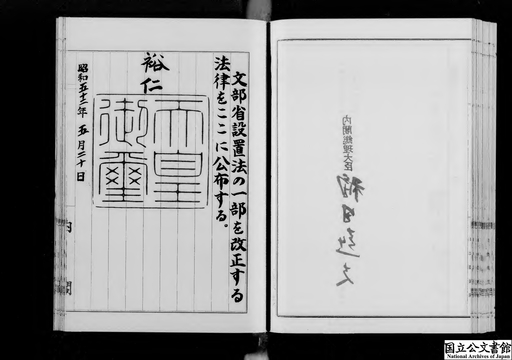 内閣総理大臣
福田赳夫
文部省設置法の一部を改正する
法律をここに公布する。
裕仁
天皇
御璽
昭和五十二年 五月二十日
内 閣
国立公文書館
National Archives of Japan